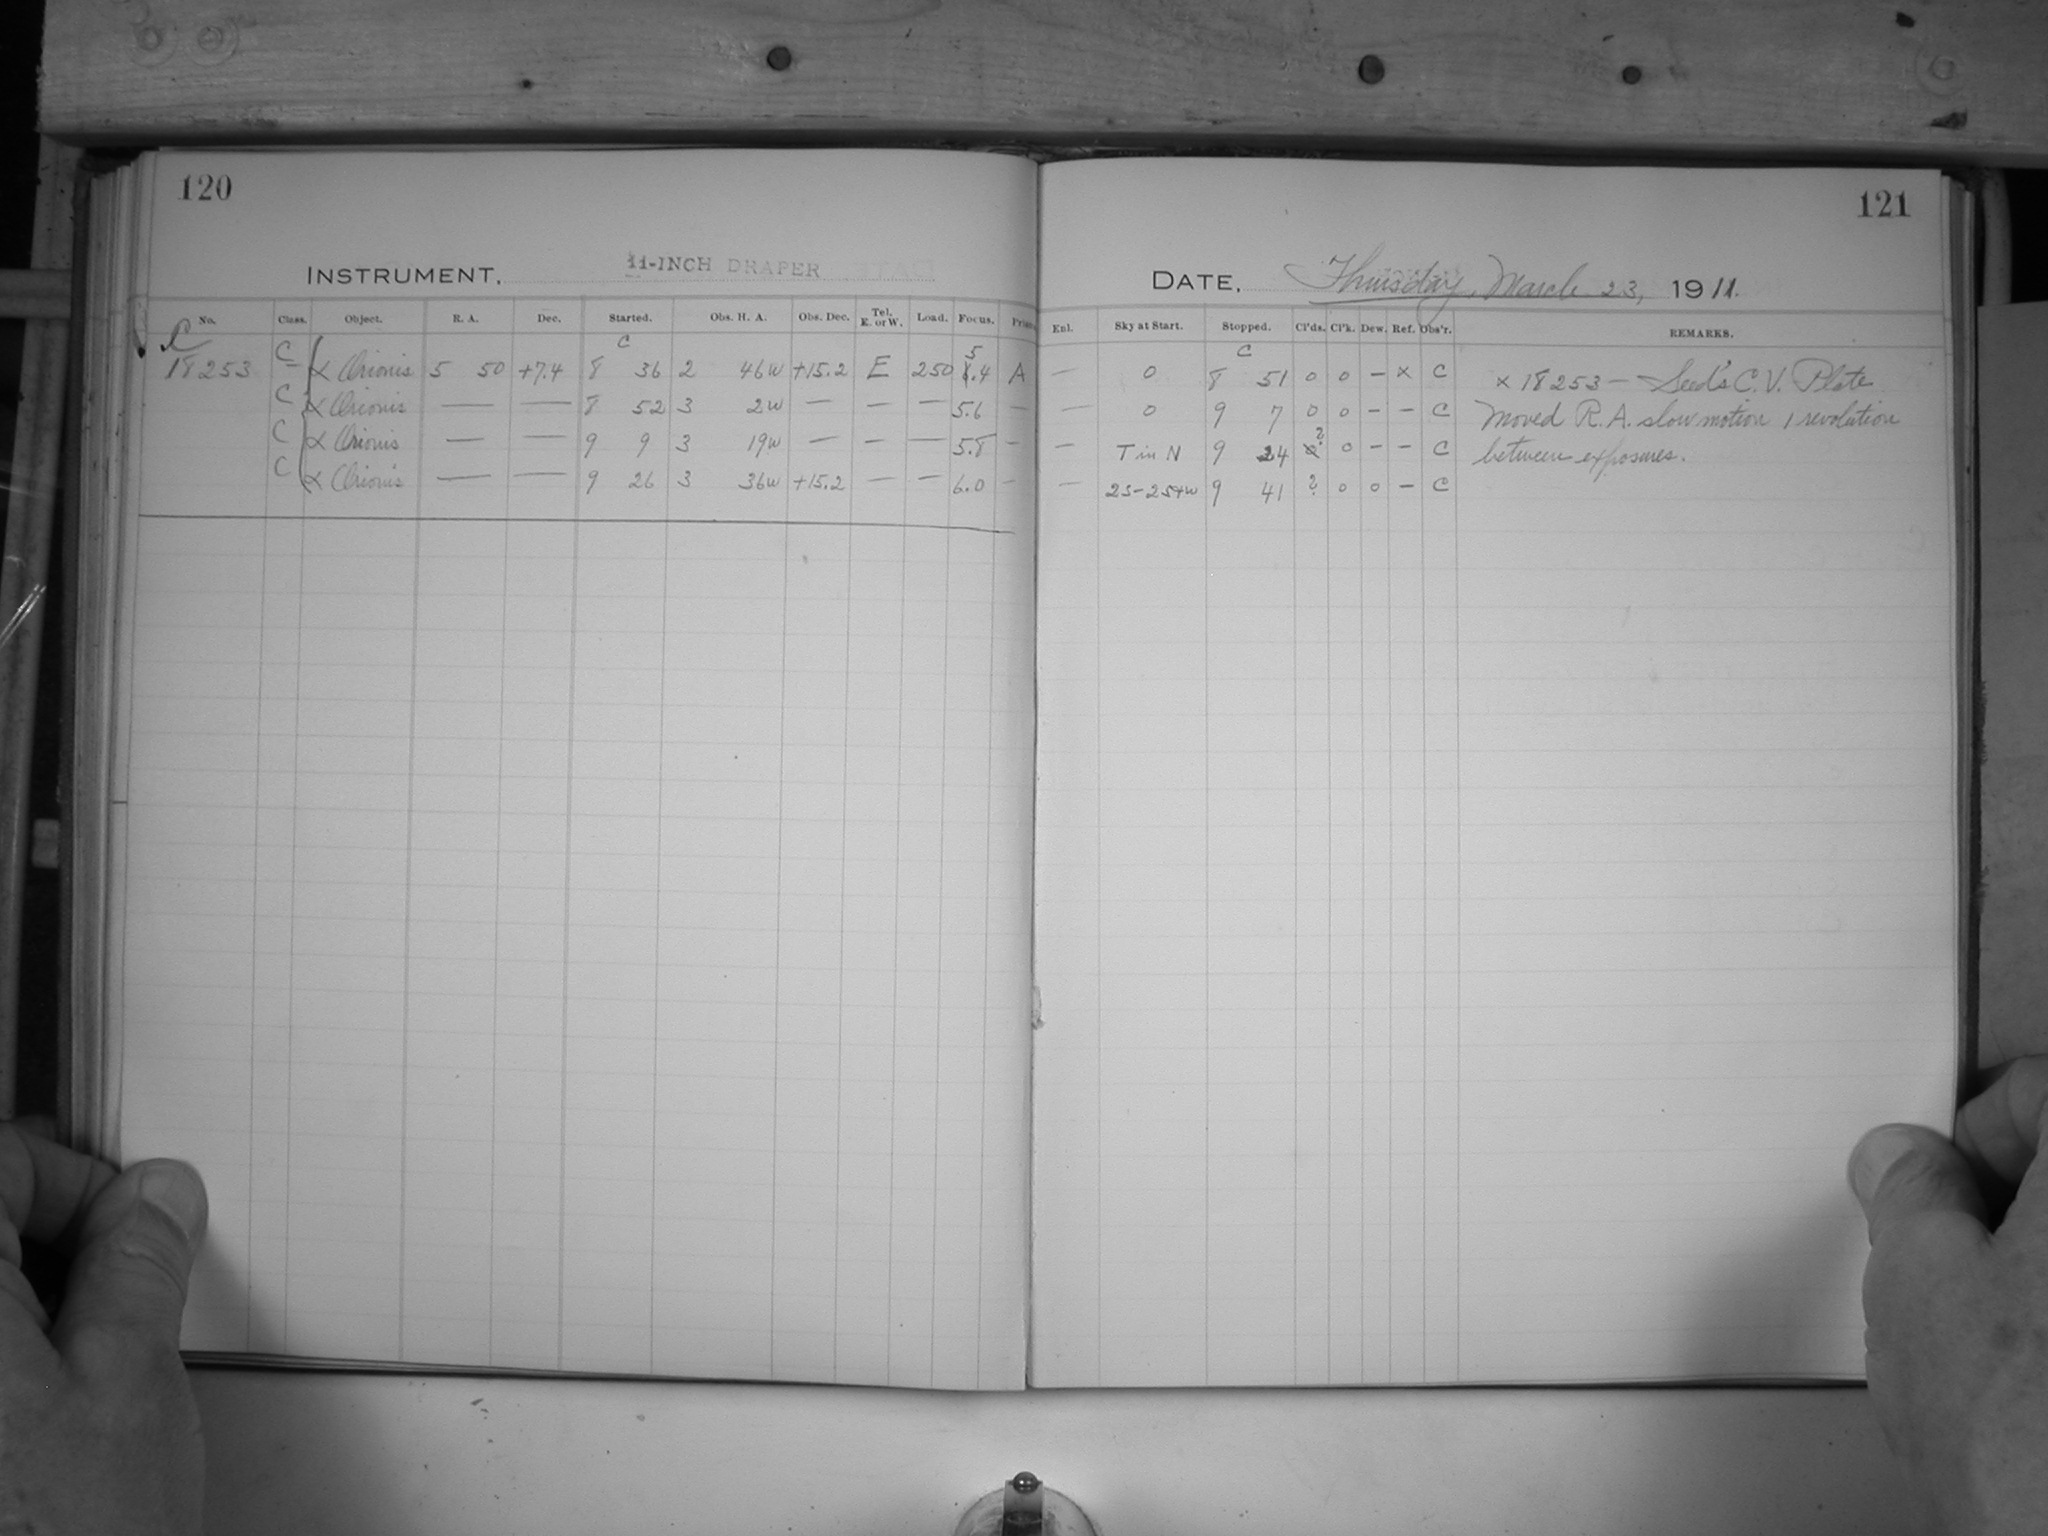 120
INSTRUMENT. 11-INCH DRAPER
No. Class. Object. R. A. Dec. Started. Obs. H. A. Obs. Dec. Tel. E. or W. Load. Focus. Prism
C C
18253 C α Orionis 5 50 +7.4 8 36 2 46w +15.2 E 250 5.4 A
C α Orionis — — 8 52 3 2w — — — 5.6 —
C α Orionis — — 9 9 3 19w — — — 5.8 —
C α Orionis — — 9 26 3 36w +15.2 — — 6.0 —
121
DATE. Thursday, March 23, 1911.
Enl. Sky at Start. Stopped. Cl'ds. Cl'k. Dew. Ref. Obs'r. REMARKS.
C
— 0 8 51 0 0 — x C x 18253 — Seed's C. V. Plate
— 0 9 7 0 0 — — C Moved R. A. slow motion 1 revolution
— T in N 9 24 ? 0 — — C between exposures.
— 9 41 ? 0 0 — C